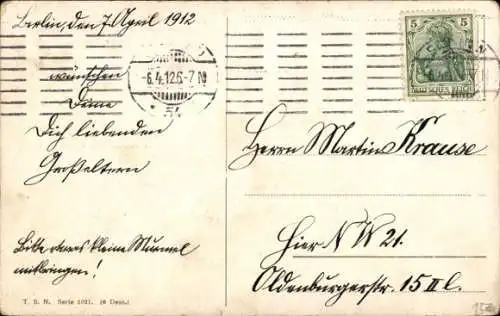 Berlin, den 7. April 1912
wünschen
Deine
Dich liebenden
Großeltern
Bitte das kleine Murmel
mitbringen!
T. S. N. Serie 1021. (6 Dess.)
5 5
DEUTSCHES REICH
-6.4.12.6-7N
* 5
Herrn Martin Krause
Hier N W 21.
Oldenburgerstr. 15 II l.